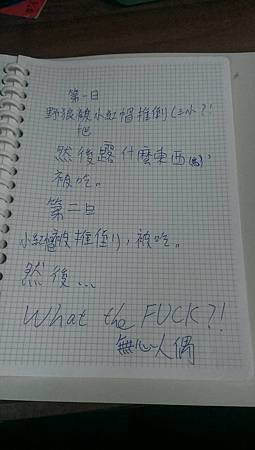 第一日
野狼被小紅帽推倒(三小?!
把
然後露什麼東西(鳥),
被吃。
第二日
小紅帽被推倒,被吃。
然後...
What the FUCK?!
無心人偶